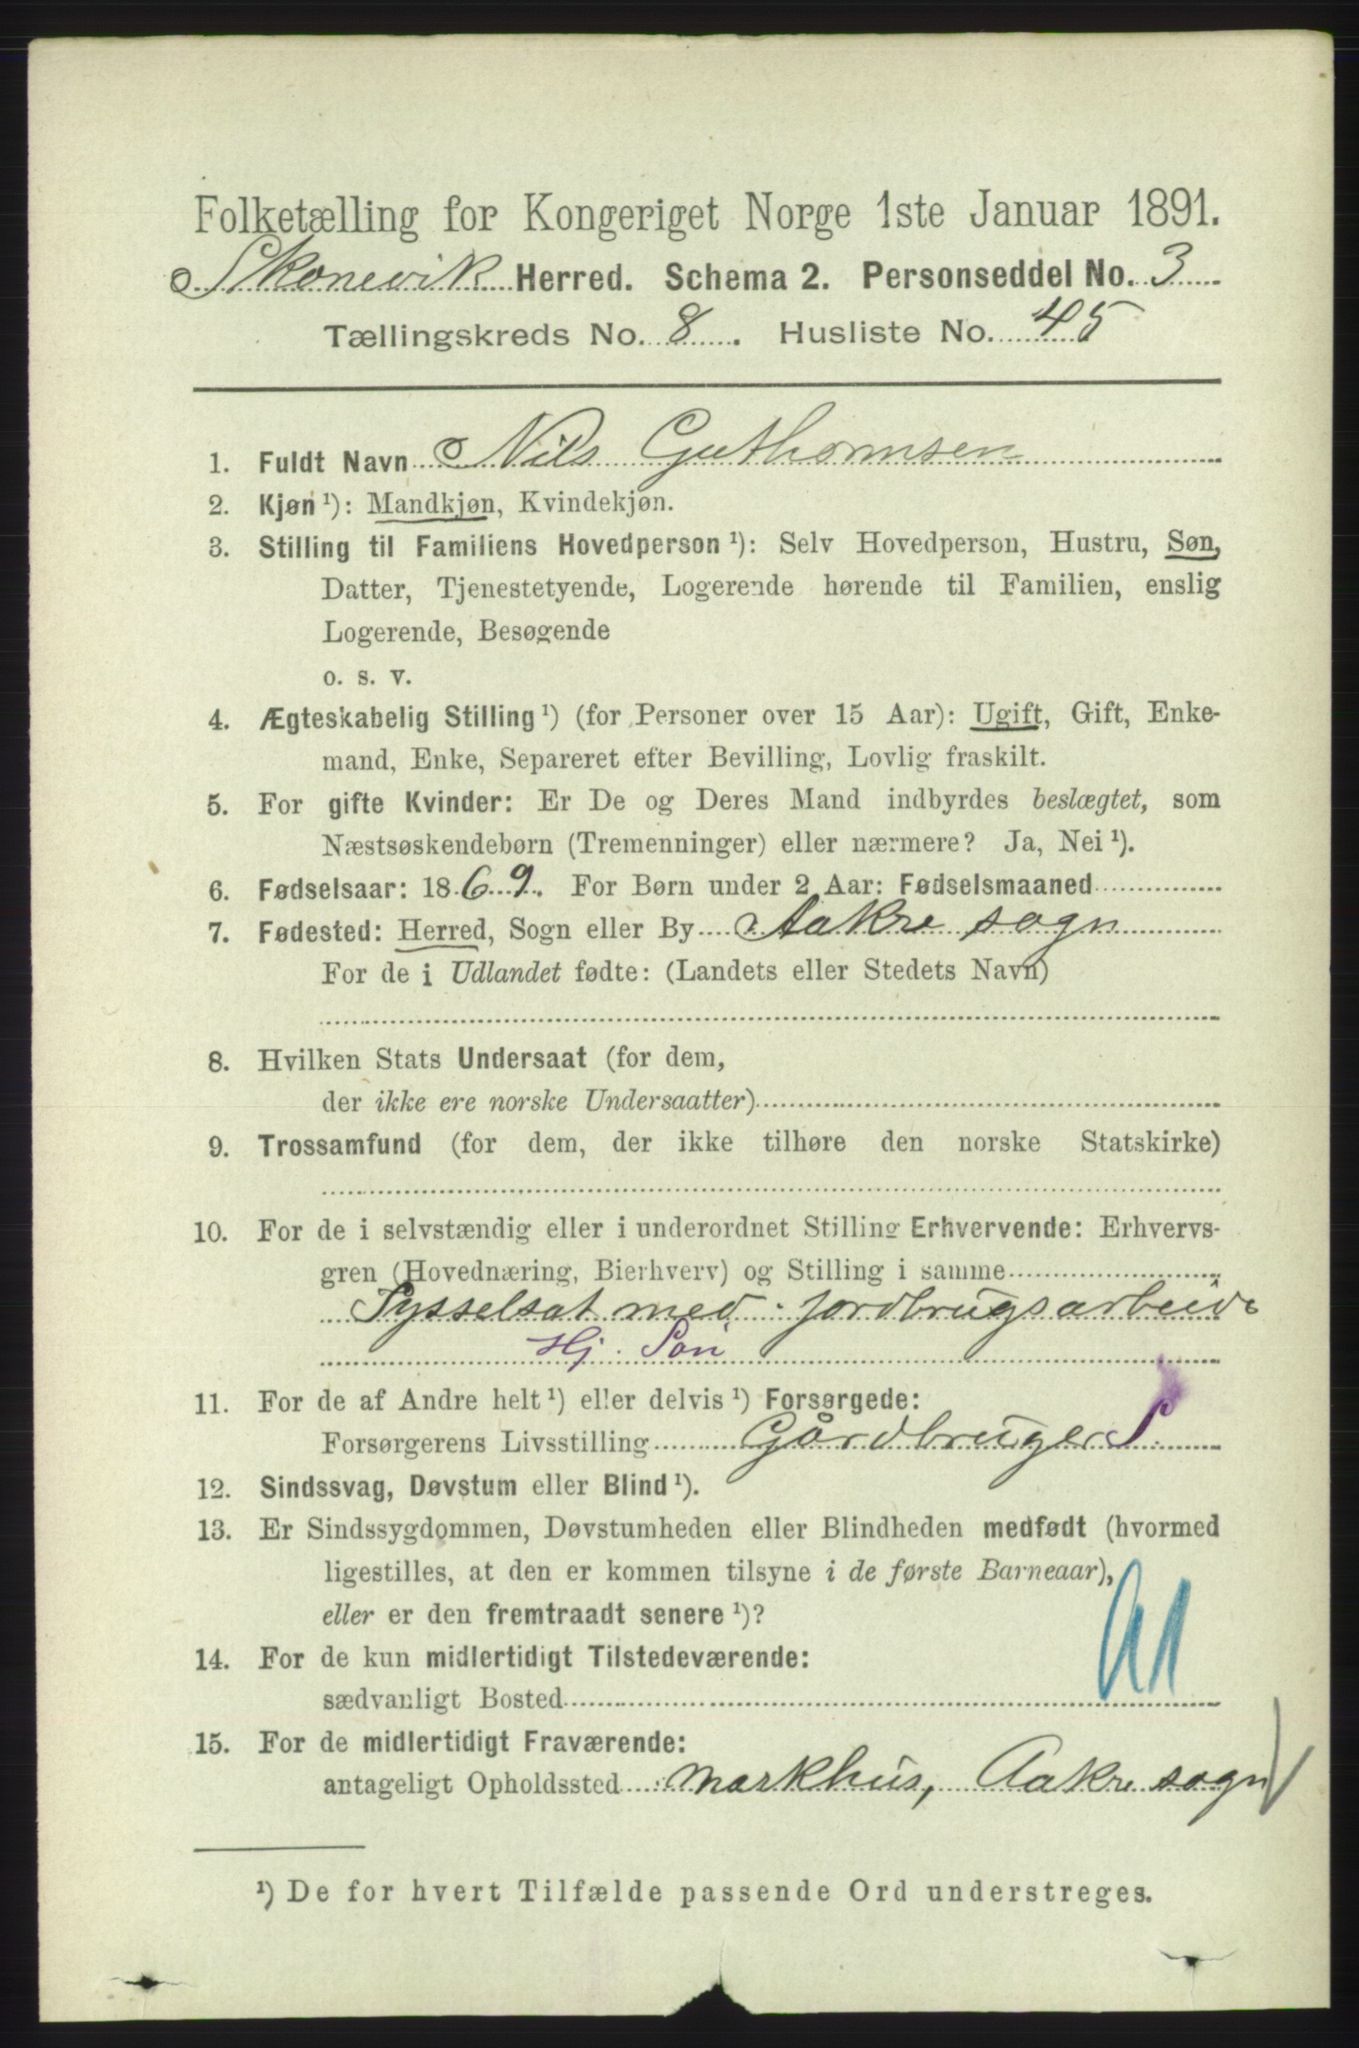 Folketælling for Kongeriget Norge 1ste Januar 1891.
Skonevik Herred. Schema 2. Personseddel No. 3
Tællingskreds No. 8. Husliste No. 45
1. Fuldt Navn Nils Guthormsen
2. Kjøn ¹): Mandkjøn, Kvindekjøn.
3. Stilling til Familiens Hovedperson ¹): Selv Hovedperson, Hustru, Søn,
Datter, Tjenestetyende, Logerende hørende til Familien, enslig
Logerende, Besøgende
o. s. v.
4. Ægteskabelig Stilling ¹) (for Personer over 15 Aar): Ugift, Gift, Enke-
mand, Enke, Separeret efter Bevilling, Lovlig fraskilt.
5. For gifte Kvinder: Er De og Deres Mand indbyrdes beslægtet, som
Næstsøskendebørn (Tremenninger) eller nærmere? Ja, Nei ¹).
6. Fødselsaar: 1869. For Børn under 2 Aar: Fødselsmaaned
7. Fødested: Herred, Sogn eller By Aakre sogn
For de i Udlandet fødte: (Landets eller Stedets Navn)
8. Hvilken Stats Undersaat (for dem,
der ikke ere norske Undersaatter)
9. Trossamfund (for dem, der ikke tilhøre den norske Statskirke)
10. For de i selvstændig eller i underordnet Stilling Erhvervende: Erhvervs-
gren (Hovednæring, Bierhverv) og Stilling i samme
Sysselsat med jordbrugsarbeide
Hj. Søn
11. For de af Andre helt ¹) eller delvis ¹) Forsørgede:
Forsørgerens Livsstilling Gårdbruger S
12. Sindssvag, Døvstum eller Blind ¹).
13. Er Sindssygdommen, Døvstumheden eller Blindheden medfødt (hvormed
ligestilles, at den er kommen tilsyne i de første Barneaar),
eller er den fremtraadt senere ¹)?
14. For de kun midlertidigt Tilstedeværende:
sædvanligt Bosted
15. For de midlertidigt Fraværende:
antageligt Opholdssted Markhus, Aakre sogn
¹) De for hvert Tilfælde passende Ord understreges.